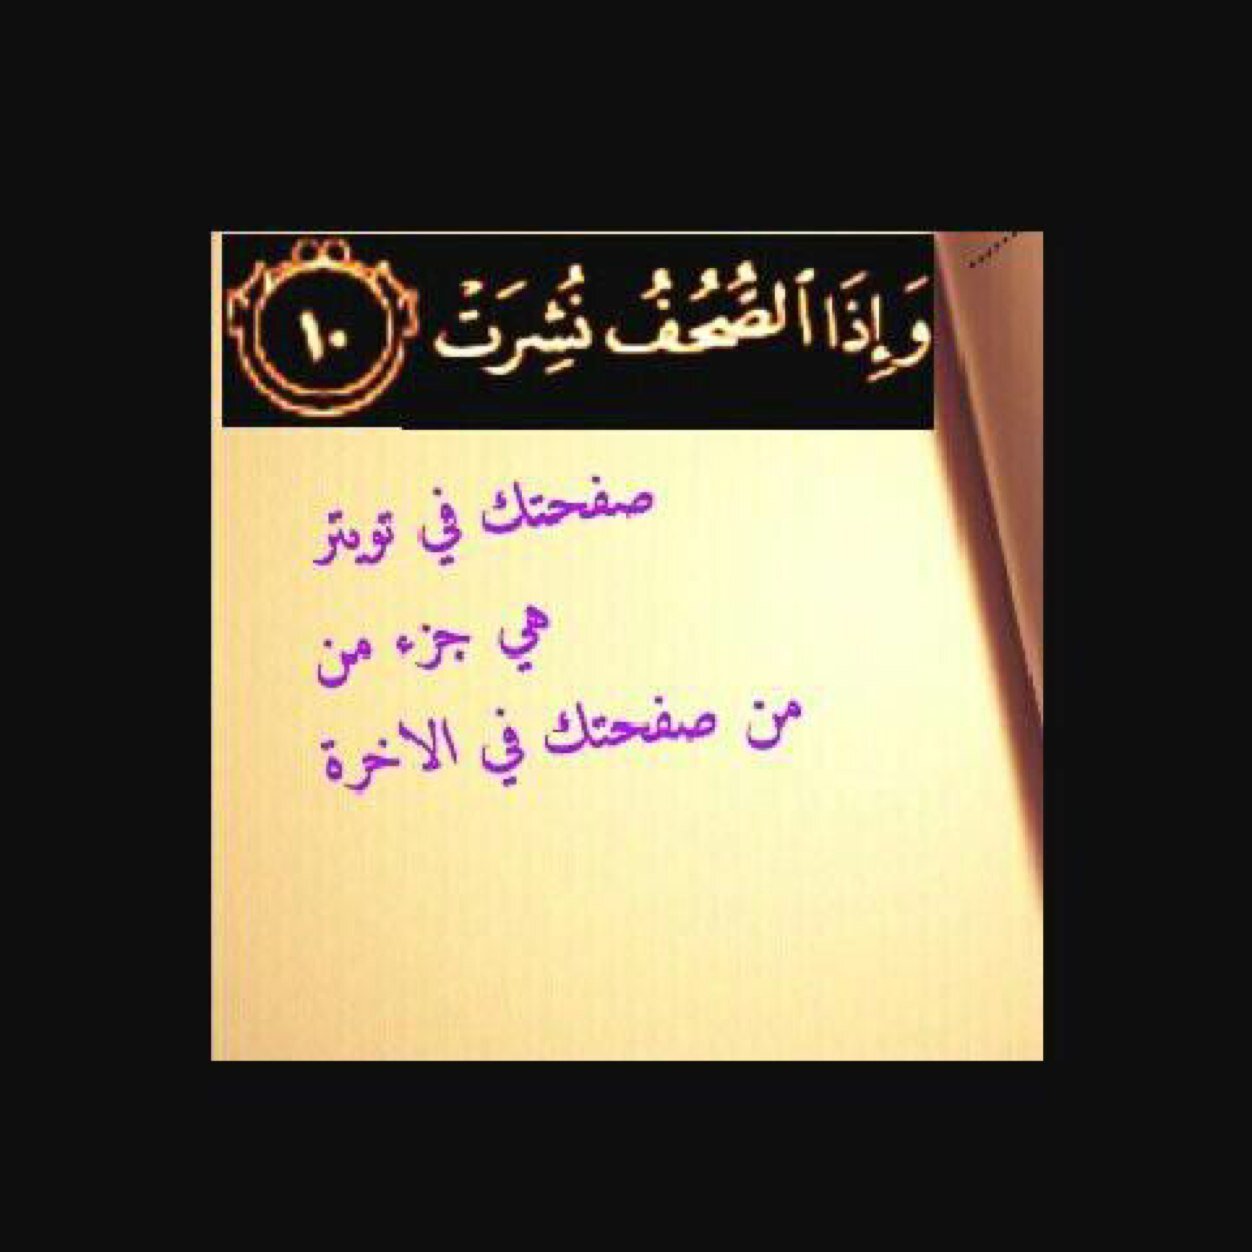 وَإِذَا ٱلصُّحُفُ نُشِرَتْ ١٠
صفحتك في تويتر
هي جزء من
من صفحتك في الاخرة